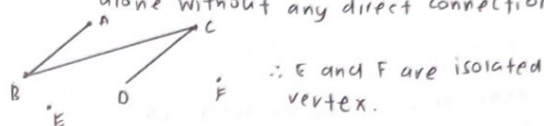 alone without any direct connection
A
C
B
D
F
E
∴ E and F are isolated
vertex.